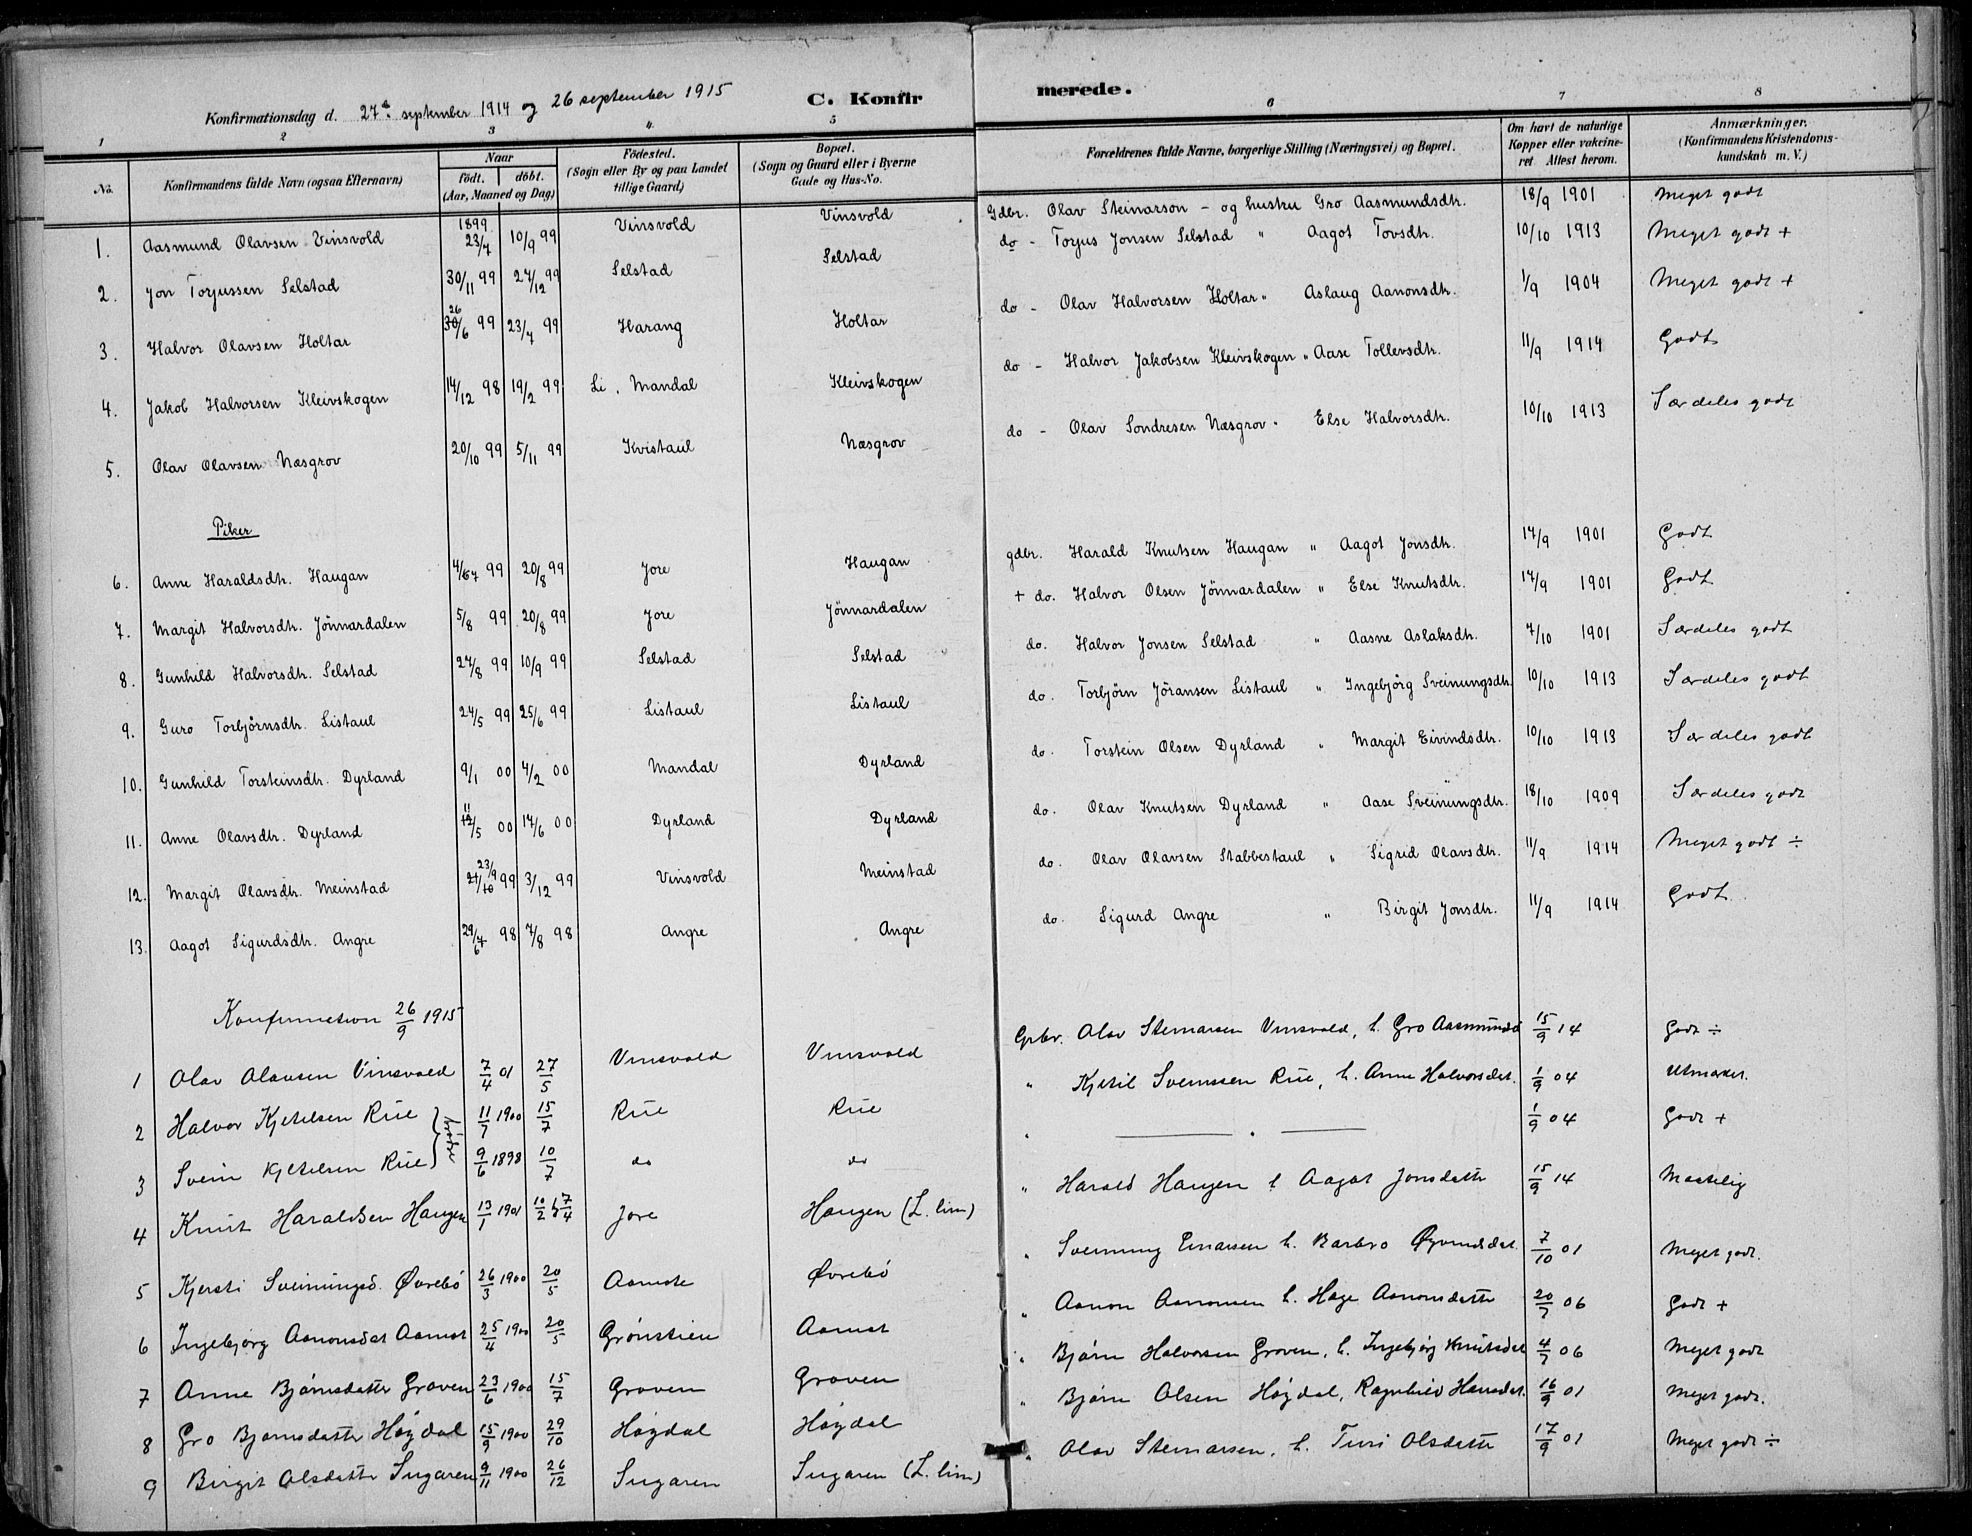 C. Konfirmerede.
Konfirmationsdag d. 27de september 1914 og 26 september 1915
1 2 3 4 5 6 7 8
No. | Konfirmandens fulde Navn (ogsaa Efternavn) | Naar født. døbt. (Aar, Maaned og Dag) | Fødested. (Sogn eller By og paa Landet tillige Gaard) | Bopæl. (Sogn og Gaard eller i Byerne Gade og Hus-No. | Forældrenes fulde Navne, borgerlige Stilling (Næringsvei) og Bopæl. | Om havt de naturlige Kopper eller vakcineret. Attest herom. | Anmærkninger. (Konfirmandens Kristendomskundskab m. V.)
1. Aasmund Olavsen Vinsvold | 1899 23/7 | 10/9 99 | Vinsvold | Vinsvold | Gdbr. Olav Steinarson - og hustru Gro Aasmundsdtr. | 18/9 1901 | Meget godt
2. Jon Torjussen Selstad | 30/11 99 | 27/12 99 | Selstad | Selstad | do - Torjus Jonsen Selstad " Aagot Tovsdtr. | 10/10 1913 | Meget godt +
3. Halvor Olavsen Holtar | 26 30/6 99 | 23/7 99 | Harang | Holtar | do - Olav Halvorsen Holtar " Aslaug Aanonsdtr. | 1/9 1904 | Meget godt +
4. Jakob Halvorsen Kleivskogen | 14/12 98 | 19/2 99 | Li, Mandal | Kleivskogen | do - Halvor Jakobsen Kleivskogen " Aase Tollevsdtr. | 11/9 1914 | Godt
5. Olav Olavsen Næsgrov | 20/10 99 | 5/11 99 | Kvistaul | Næsgrov | do - Olav Sondresen Næsgrov " Else Halvorsdtr. | 10/10 1913 | Særdeles godt
Piker
6. Anne Haraldsdtr. Haugan | 4/67 99 | 20/8 99 | Jore | Haugan | gdbr. Harald Knutsen Haugan " Aagot Jonsdtr. | 17/9 1901 | Godt
7. Margit Halvorsdtr. Jönnardalen | 5/8 99 | 20/8 99 | Jore | Jönnardalen | + do. Halvor Olsen Jönnardalen " Else Knutsdtr. | 17/9 1901 | Godt
8. Gunhild Halvorsdtr. Selstad | 27/8 99 | 10/9 99 | Selstad | Selstad | do. Halvor Jonsen Selstad " Aasne Aslaksdtr. | 7/10 1901 | Særdeles godt
9. Guro Torbjörnsdtr. Listaul | 24/5 99 | 25/6 99 | Listaul | Listaul | do. Torbjörn Jöransen Listaul " Ingebjörg Sveinungsdtr. | 10/10 1913 | Særdeles godt
10. Gunhild Torsteinsdtr. Dyrland | 9/1 00 | 4/2 00 | Mandal | Dyrland | do. Torstein Olsen Dyrland " Margit Eivindsdtr. | 10/10 1913 | Særdeles godt
11. Anne Olavsdtr. Dyrland | 11 12/5 00 | 17/6 00 | Dyrland | Dyrland | do. Olav Knutsen Dyrland " Aase Sveinungsdtr. | 18/10 1909 | Særdeles godt
12. Margit Olavsdtr. Meinstad | 23/9 21/10 99 | 3/12 99 | Vinsvold | Meinstad | do. Olav Olavsen Stabbestaul " Sigrid Olavsdtr. | 11/9 1914 | Meget godt ÷
13. Aagot Sigurdsdtr. Angre | 29/6 98 | 7/8 98 | Angre | Angre | do. Sigurd Angre " Birgit Jonsdtr. | 11/9 1914 | Godt
Konfirmation 26/9 1915
1 Olav Olavsen Vinsvold | 7/4 01 | 27/5 | Vinsvold | Vinsvold | Grbr. Olav Steinarsen Vinsvold, h. Gro Aasmundsd | 15/9 14 | Godt ÷
2 Halvor Kjetilsen Rue | 11/7 1900 | 15/7 | Rue | Rue | " Kjetil Sveinssen Rue, h. Anne Halvorsdat. | 1/9 04 | Utmærket.
3 Svein Kjetilsen Rue } brødre | 9/6 1898 | 10/7 | do | do | " — " — | 1/9 04 | Godt +
4 Knut Haraldsen Haugen | 13/1 1901 | 10/2 7/4 | Jore | Haugen (L. lim) | " Harald Haugen h Aagot Jonsdatter | 15/9 14 | Maatelig
5 Kjersti Sveinungsd. Øvrebö | 26/3 1900 | 20/5 | Aamot | Øvrebö | " Sveinung Einarsen h. Barbro Øyvindsdat. | 7/10 01 | Meget godt.
6 Ingebjørg Aanonsdat Aamot | 25/4 1900 | 20/5 | Grönstien | Aamot | " Aanon Aanonsen h. Hæge Aanonsdatter | 20/7 06 | Godt +
7 Anne Bjørnsdatter Groven | 23/6 1900 | 15/7 | Groven | Groven | " Bjørn Halvorsen Groven, h. Ingebjörg Knutsdat | 4/7 06 | Meget godt
8 Gro Bjørnsdatter Høgdal | 15/9 1900 | 29/10 | Høgdal | Høgdal | " Bjørn Olsen Høgdal, Ragnhild Hansdat. | 16/9 01 | Meget godt.
9 Birgit Olsdatter Sugaren | 9/11 1900 | 26/12 | Sugaren | Sugaren (L. lim) | " Olav Steinarsen, h. Turi Olsdatter | 17/9 01 | Meget godt ÷